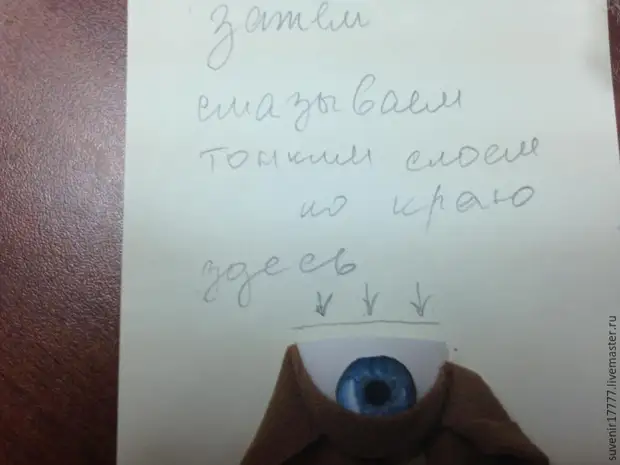 затем
смазываем
тонким слоем
по краю
здесь
suvenir17777.livemaster.ru